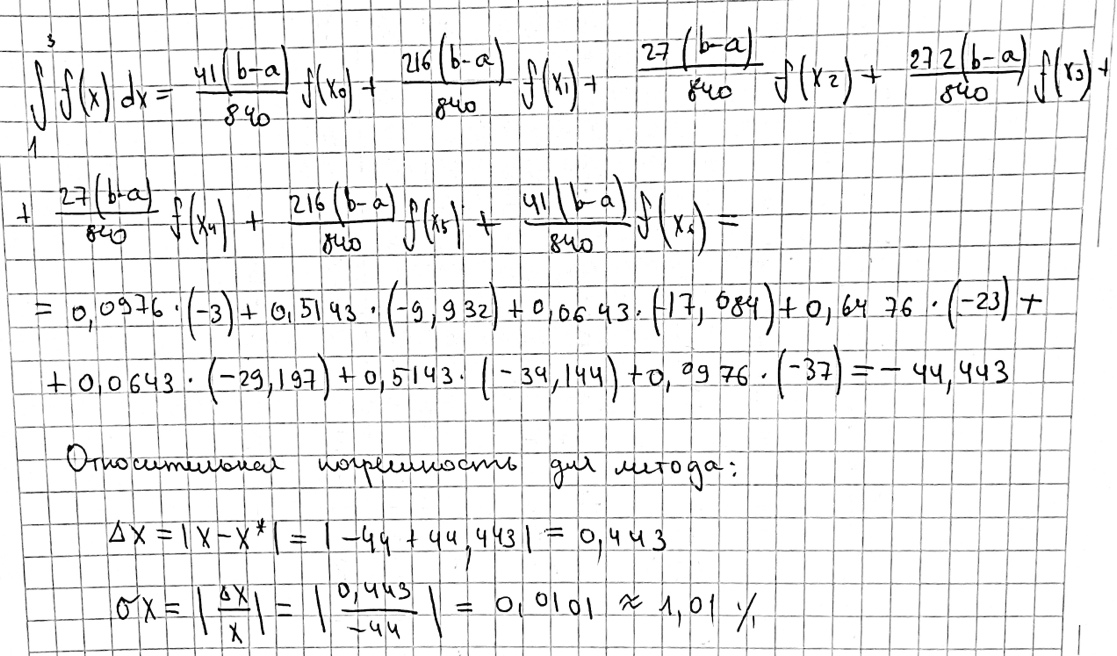 ∫₁³ f(x) dx = 41(b-a)/840 f(x₀) + 216(b-a)/840 f(x₁) + 27(b-a)/840 f(x₂) + 272(b-a)/840 f(x₃) +
+ 27(b-a)/840 f(x₄) + 216(b-a)/840 f(x₅) + 41(b-a)/840 f(x₆) =
= 0,0976·(-3) + 0,5143·(-9,932) + 0,0643·(-17,084) + 0,6476·(-23) +
+ 0,0643·(-29,197) + 0,5143·(-34,144) + 0,0976·(-37) = -44,443
Относительная погрешность для метода:
Δx = |x-x*| = |-44 + 44,443| = 0,443
σx = |Δx/x| = |0,443/-44| = 0,0101 ≈ 1,01 %